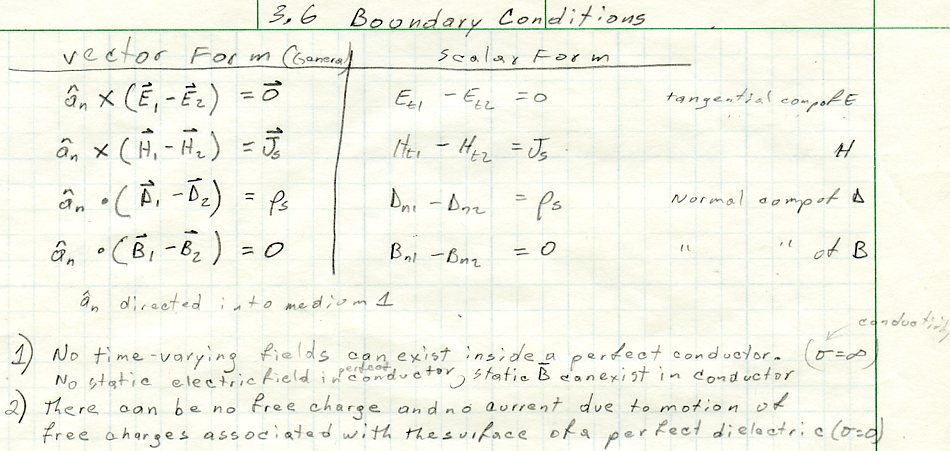 3.6 Boundary Conditions
vector Form (General) scalar Form
â_n × (E⃗₁ - E⃗₂) = 0⃗ E_t1 - E_t2 = 0 tangential comp of E
â_n × (H⃗₁ - H⃗₂) = J⃗_s H_t1 - H_t2 = J_s H
â_n • (D⃗₁ - D⃗₂) = ρ_s D_n1 - D_n2 = ρ_s Normal comp of D
â_n • (B⃗₁ - B⃗₂) = 0 B_n1 - B_n2 = 0 " " of B
â_n directed into medium 1
conductivity
1) No time-varying fields can exist inside a perfect conductor. (σ=∞)
No static electric field in perfect conductor, static B̄ can exist in conductor
2) There can be no free charge and no current due to motion of
free charges associated with the surface of a perfect dielectric (σ=0)